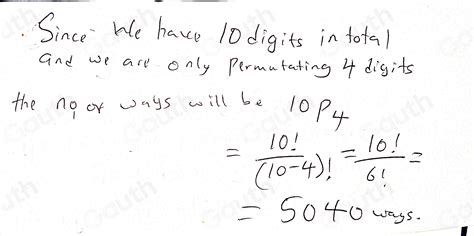 Since we have 10 digits in total
and we are only permutating 4 digits
the no of ways will be 10P4
= 10!/(10-4)! = 10!/6! =
= 5040 ways.